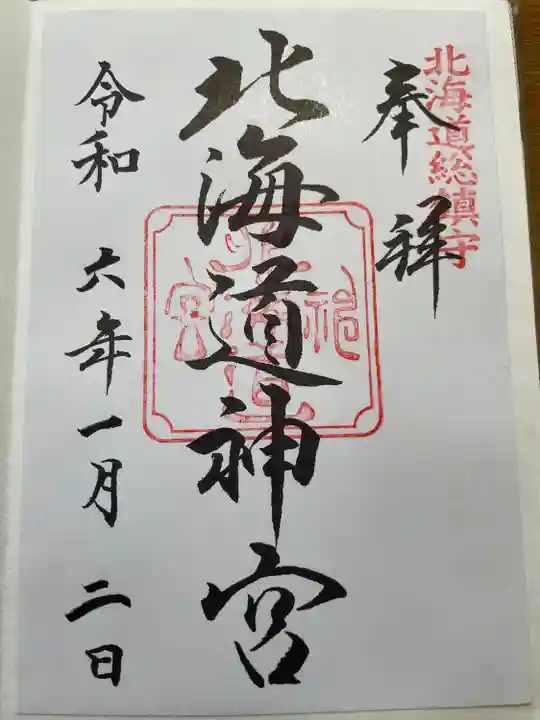 北海道総鎮守
奉拝
北海道神宮
令和 六年一月 二日